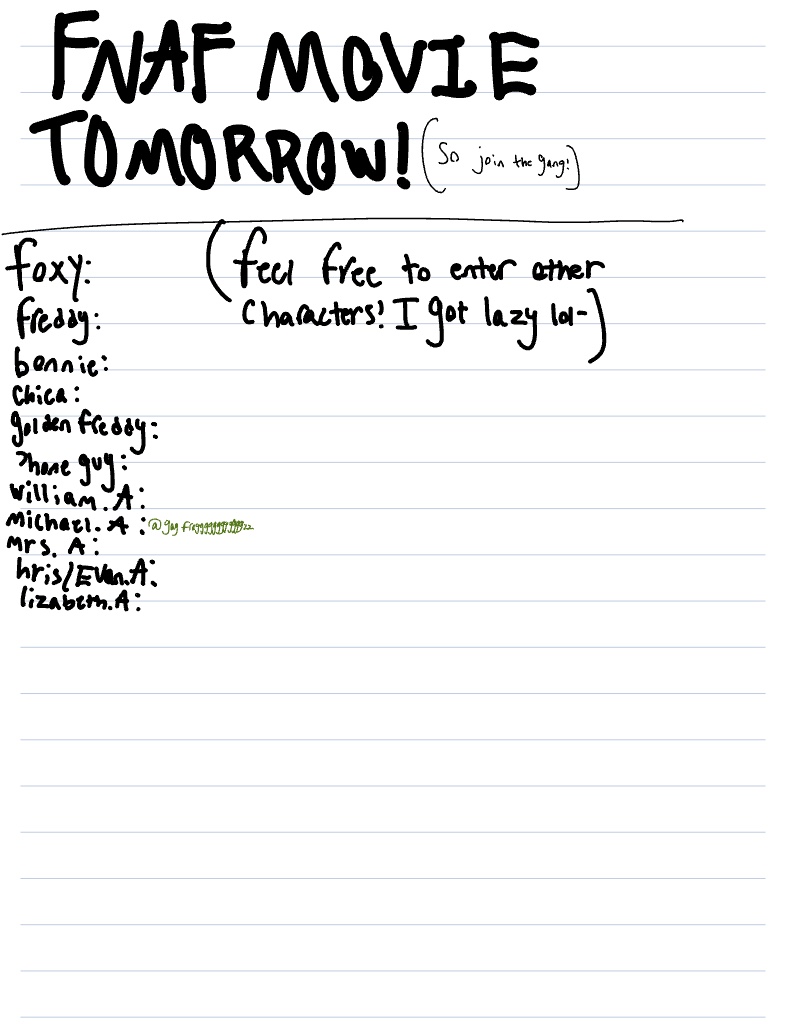 FNAF MOVIE
TOMORROW! (So join the gang!)
foxy:
(feel free to enter other
characters! I got lazy lol-)
freddy:
bonnie:
chica:
golden freddy:
Phone guy:
William.A:
Michael.A:
Mrs. A:
hris/Evan.A:
lizabeth.A: